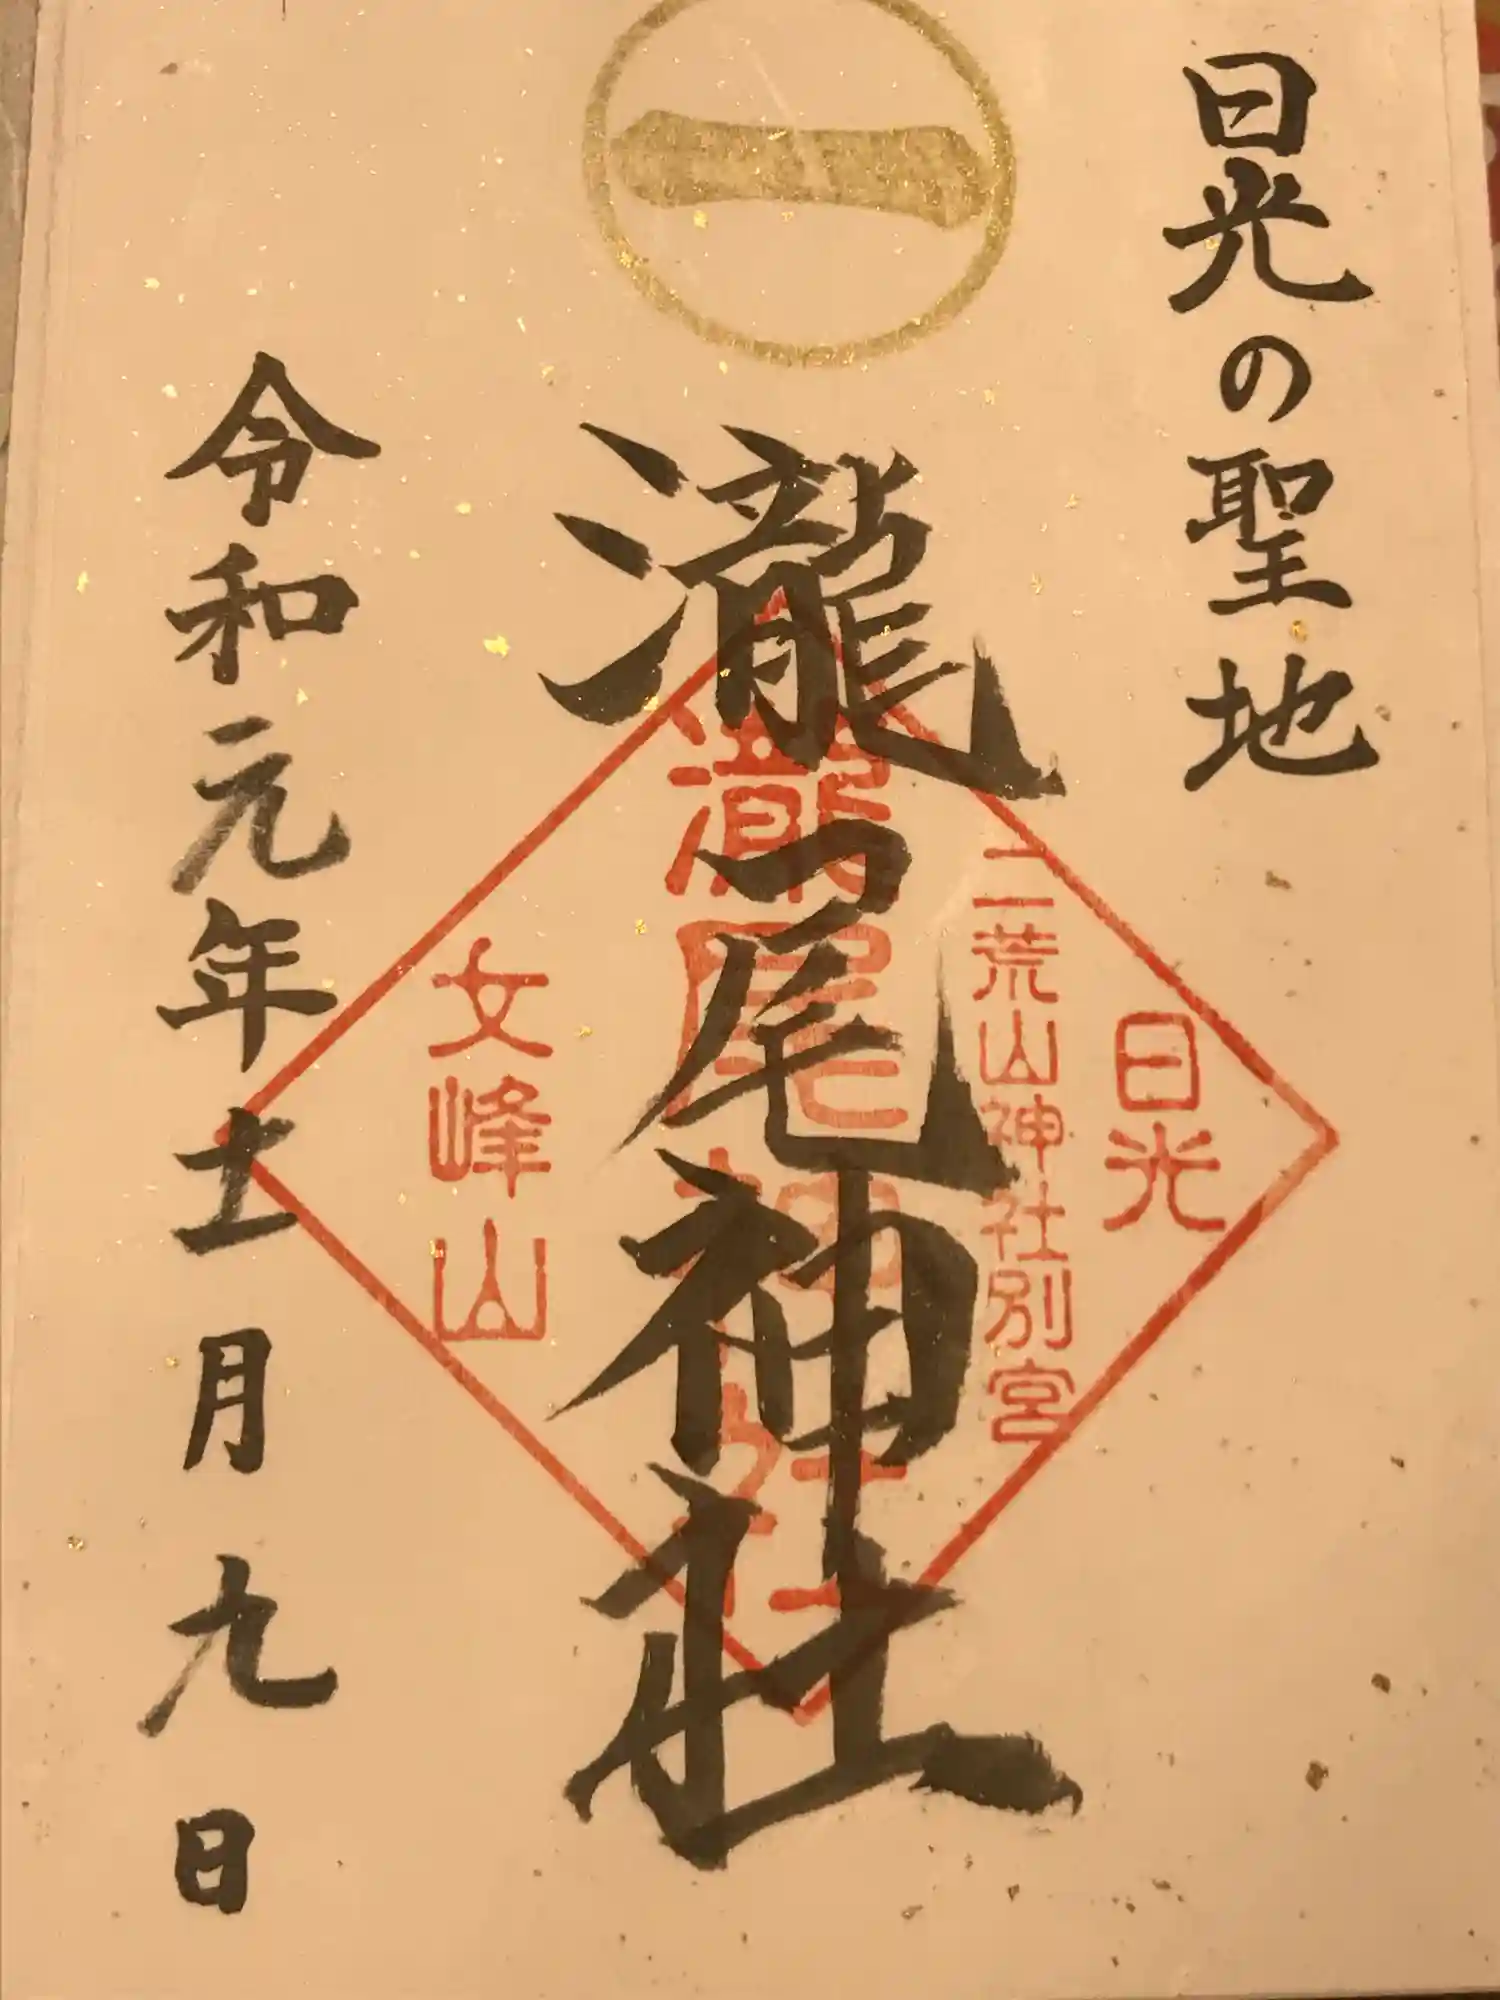 一
日光の聖地
瀧尾神社
日光
二荒山神社別宮
瀧尾神社
女峰山
令和元年十一月九日